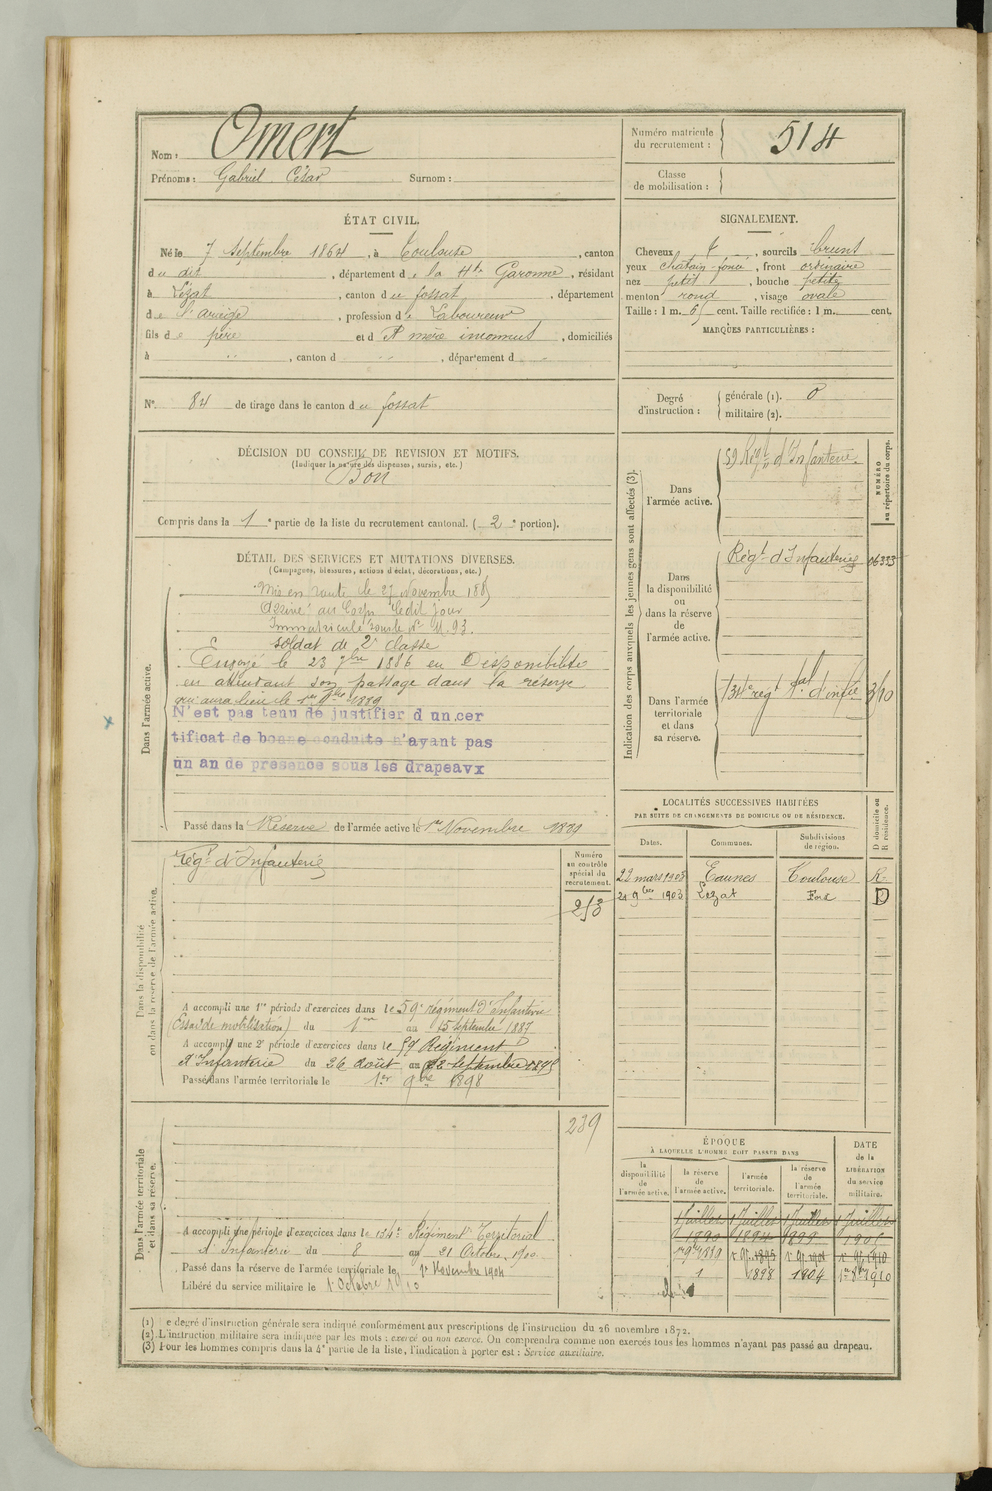 Nom : Omert
Prénoms : Gabriel César Surnom :
Numéro matricule du recrutement : 514
Classe de mobilisation :
ÉTAT CIVIL.
Né le 7 Septembre 1864, à Toulouse, canton
du dit, département de la Hte Garonne, résidant
à Lézat, canton du fossat, département
de l'ariège, profession de Laboureur
fils de père et d mère inconnus, domiciliés
à " , canton d " , département d "
N° 84 de tirage dans le canton du fossat
SIGNALEMENT.
Cheveux , sourcils bruns
yeux chatain foncé, front ordinaire
nez petit, bouche petite
menton rond, visage ovale
Taille : 1 m. 65 cent. Taille rectifiée : 1 m. cent.
MARQUES PARTICULIÈRES :
Degré d'instruction : générale (1). 0
militaire (2).
DÉCISION DU CONSEIL DE REVISION ET MOTIFS.
(Indiquer la nature des dispenses, sursis, etc.)
Bon
Compris dans la 1e partie de la liste du recrutement cantonal. (2e portion).
DÉTAIL DES SERVICES ET MUTATIONS DIVERSES.
(Campagnes, blessures, actions d'éclat, décorations, etc.)
Dans l'armée active.
Mis en route le 27 Novembre 1885
Arrivé au Corps ledit jour
Immatriculé sous le N°
soldat de 2e classe
Envoyé le 23 7bre 1886 en Disponibilité
en attendant son passage dans la réserve
qui aura lieu le 1er 1889
N'est pas tenu de justifier d un.cer
tificat de bonne conduite n'ayant pas
un an de presence sous les drapeavx
Passé dans la Réserve de l'armée active le 1er Novembre
Indication des corps auxquels les jeunes gens sont affectés (3).
NUMÉRO au répertoire du corps.
Dans l'armée active. 59 Régt d'Infanterie.
Dans la disponibilité ou dans la réserve de l'armée active. Régt d'Infanterie 06333
Dans l'armée territoriale et dans sa réserve. 134e régt tal d'infie
Dans la disponibilité ou dans la réserve de l'armée active.
Régt d'Infanterie
Numéro au contrôle spécial du recrutement.
253
A accompli une 1re période d'exercices dans le 59e régiment d'Infanterie
(Essai de mobilisation) du 1er au 15 septembre 1887
A accompli une 2e période d'exercices dans le 59 Régiment
d'Infanterie du 26 Août au 22 septembre
Passé dans l'armée territoriale le 1er 9bre 1898
LOCALITÉS SUCCESSIVES HABITÉES
PAR SUITE DE CHANGEMENTS DE DOMICILE OU DE RÉSIDENCE.
Dates. Communes. Subdivisions de région. D domicile ou R résidence.
22 mars 1903 Eaunes Toulouse R.
21 9bre 1903 Lézat Foix D
Dans l'armée territoriale et dans sa réserve.
239
A accompli une période d'exercices dans le 134e Régiment Territorial
d'Infanterie du 8 au 21 Octobre, 1900
Passé dans la réserve de l'armée territoriale le 1er Novembre 1904
Libéré du service militaire le 1er Octobre 1910
ÉPOQUE
À LAQUELLE L'HOMME DOIT PASSER DANS
la disponibilité de l'armée active.
la réserve de l'armée active.
l'armée territoriale.
la réserve de l'armée territoriale.
DATE de la LIBÉRATION du service militaire.
1 Juillet 1 Juillet 1 Juillet 1 Juillet
1890 1894 1899 1905
1898 1904 1910
(1) e degré d'instruction générale sera indiqué conformément aux prescriptions de l'instruction du 26 novembre 1872.
(2) L'instruction militaire sera indiquée par les mots : exercé ou non exercé. On comprendra comme non exercés tous les hommes n'ayant pas passé au drapeau.
(3) Pour les hommes compris dans la 4e partie de la liste, l'indication à porter est : Service auxiliaire.